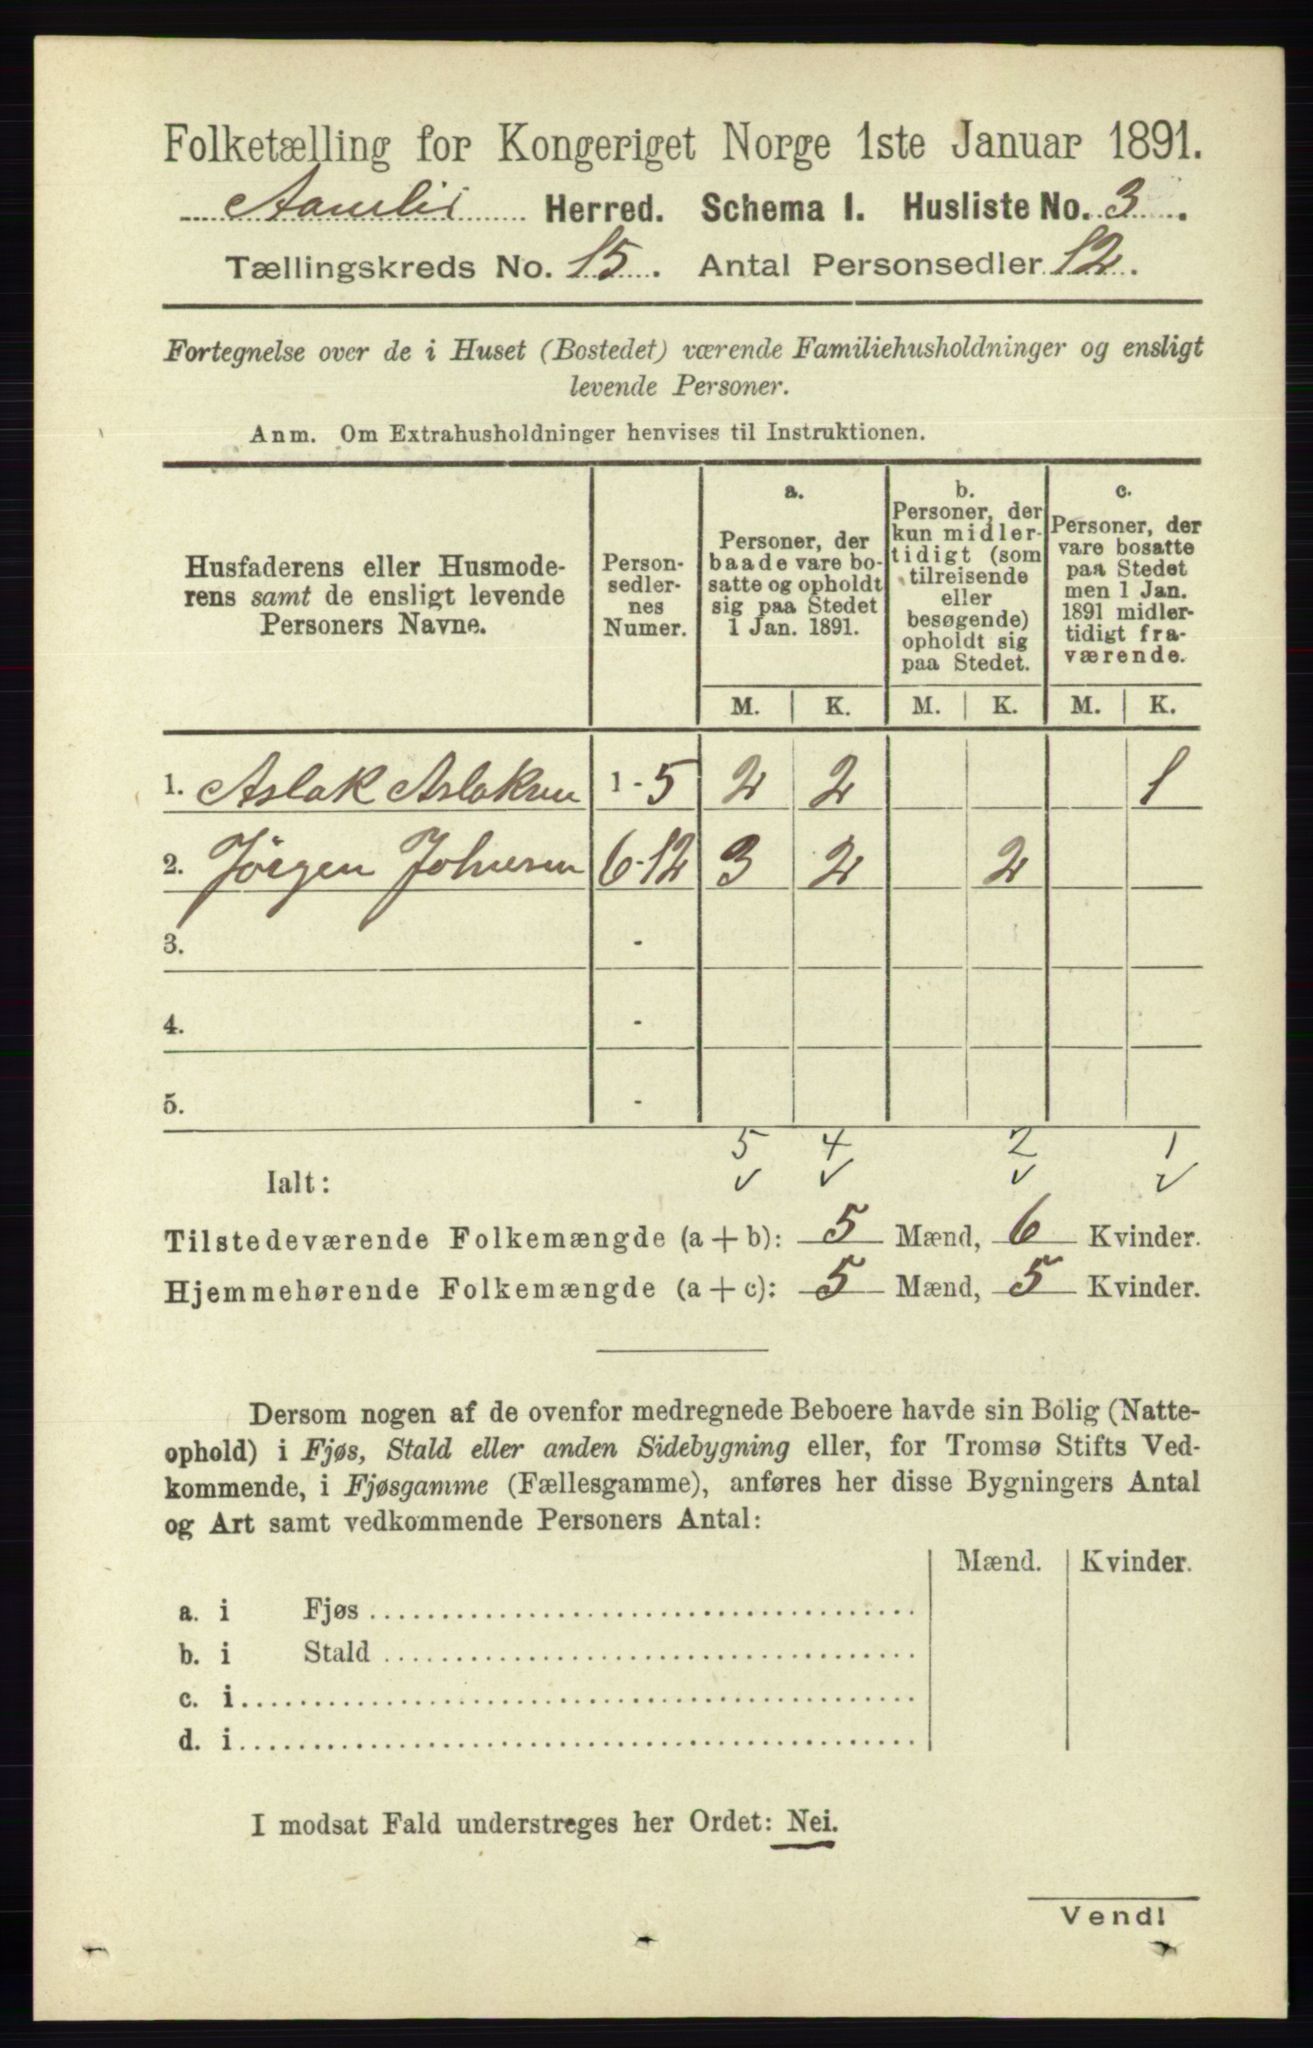 Folketælling for Kongeriget Norge 1ste Januar 1891.
Aamlid Herred. Schema I. Husliste No. 3.
Tællingskreds No. 15. Antal Personsedler 12.
Fortegnelse over de i Huset (Bostedet) værende Familiehusholdninger og ensligt
levende Personer.
Anm. Om Extrahusholdninger henvises til Instruktionen.
Husfaderens eller Husmode-
rens samt de ensligt levende
Personers Navne.
Person-
sedler-
nes
Numer.
a.
Personer, der
baade vare bo-
satte og opholdt
sig paa Stedet
1 Jan. 1891.
b.
Personer, der
kun midler-
tidigt (som
tilreisende
eller
besøgende)
opholdt sig
paa Stedet.
c.
Personer, der
vare bosatte
paa Stedet
men 1 Jan.
1891 midler-
tidigt fra-
værende.
M. K. M. K. M. K.
1. Aslak Aslaksen 1-5 2 2 1
2. Jörgen Johnsen 6-12 3 2 2
3. -
4. -
5. -
5 4 2 1
Ialt: ✓ ✓ ✓ ✓
Tilstedeværende Folkemængde (a + b): 5 Mænd, 6 Kvinder.
Hjemmehørende Folkemængde (a + c): 5 Mænd, 5 Kvinder.
Dersom nogen af de ovenfor medregnede Beboere havde sin Bolig (Natte-
ophold) i Fjøs, Stald eller anden Sidebygning eller, for Tromsø Stifts Ved-
kommende, i Fjøsgamme (Fællesgamme), anføres her disse Bygningers Antal
og Art samt vedkommende Personers Antal:
Mænd. Kvinder.
a. i Fjøs
b. i Stald
c. i
d. i
I modsat Fald understreges her Ordet: Nei.
Vend!